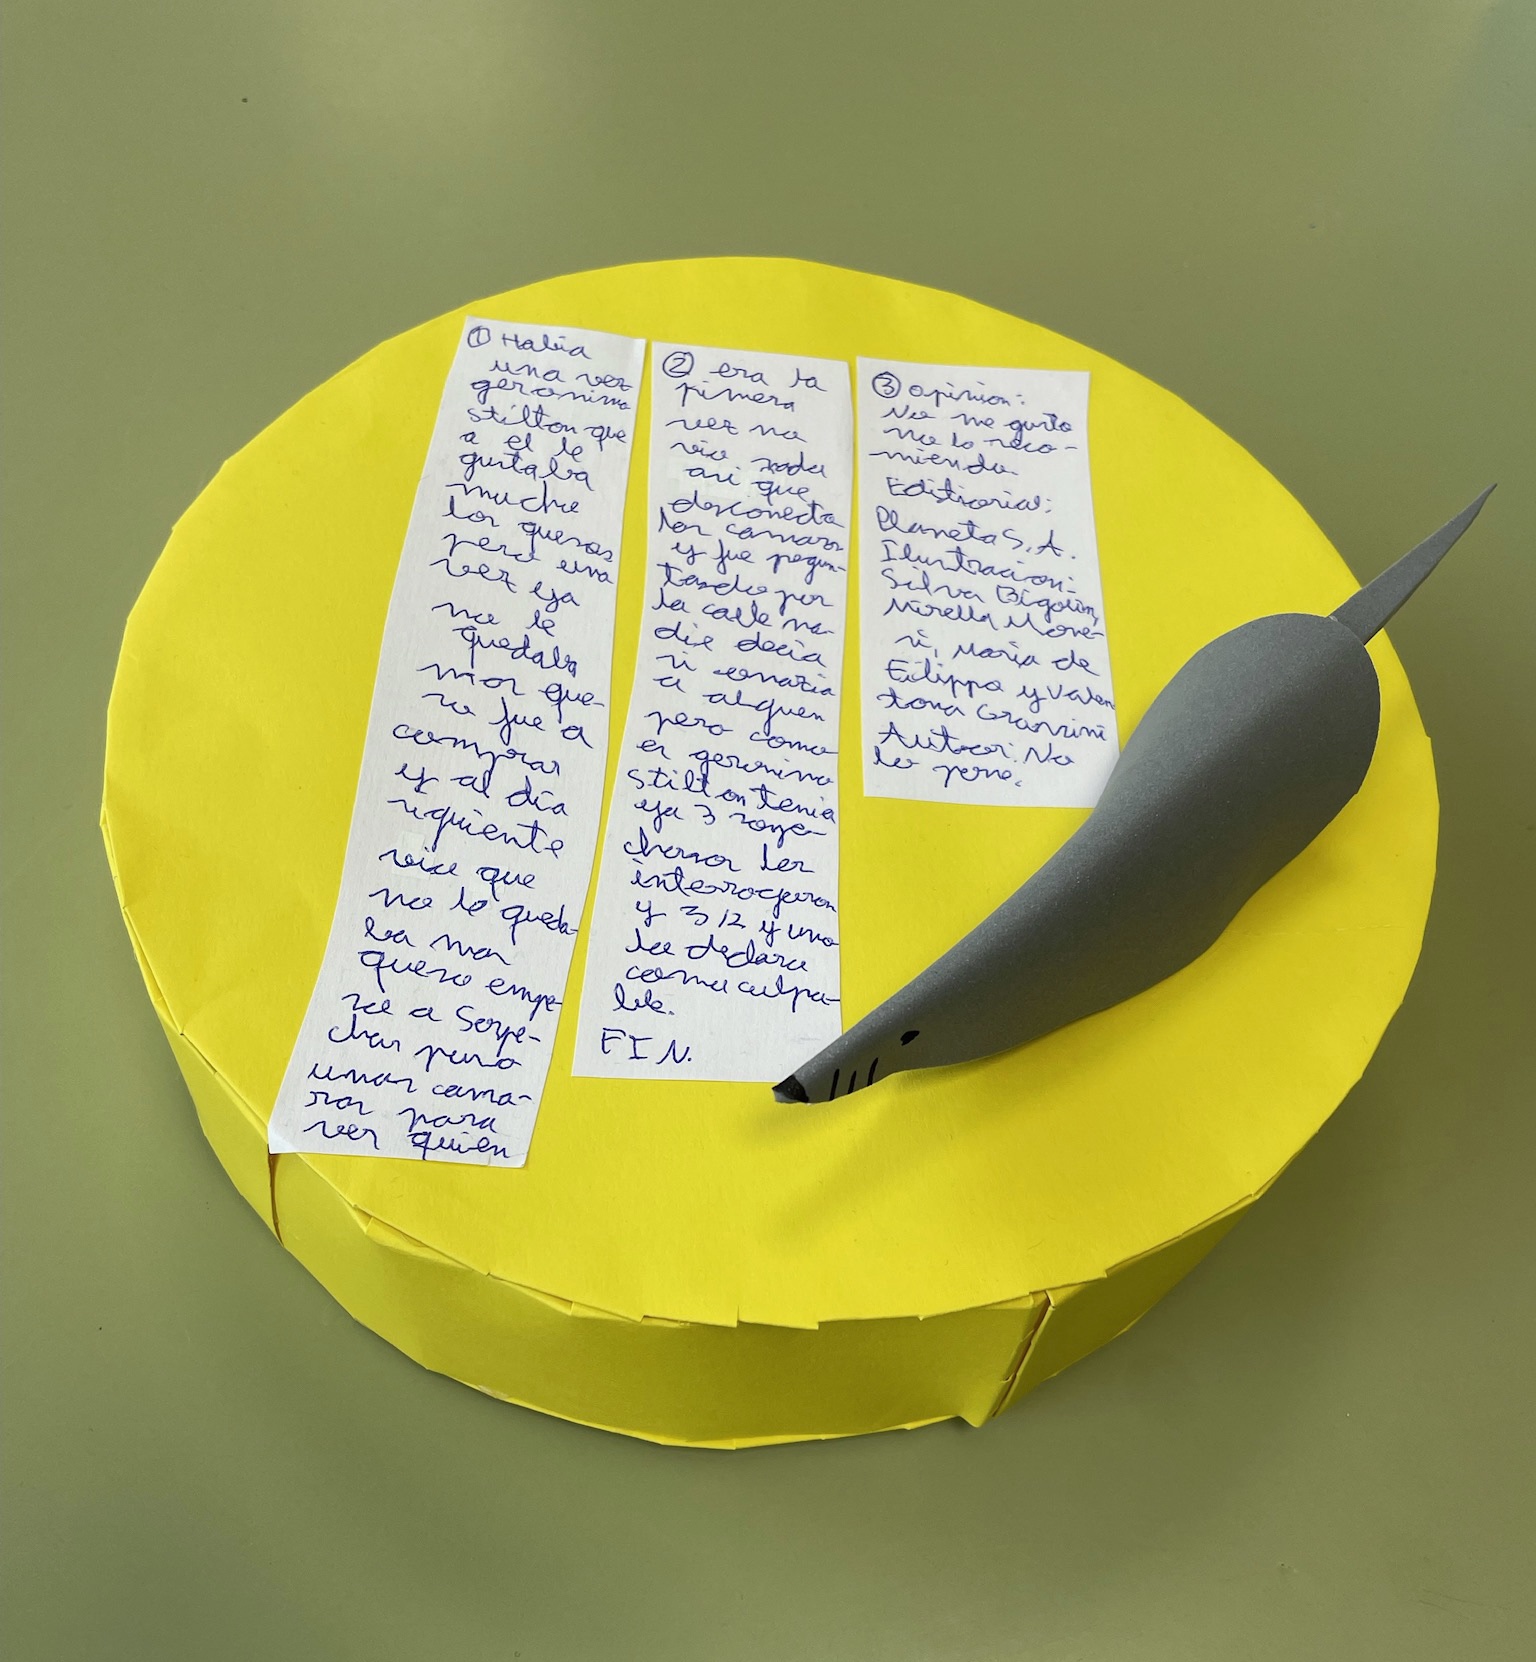 ① Había
una vez
geronimo
stilton que
a el le
gustaba
mucho
los quesos
pero una
vez ya
no le
quedaba
mas que-
so fue a
comprar
y al día
siguiente
vio que
no le queda-
ba mas
queso empe-
zo a sospe-
char puso
unas cama-
ras para
ver quien
② era la
pimera
vez no
vio nada
asi que
desconecto
las camaras
y fue pegun-
tando por
la calle na-
die decia
si conozia
a alguen
pero como
er geronimo
stilton tenia
ya 3 sospe-
chosos les
interrogaron
y 3 12 y uno
lo declaro
como culpa-
ble.
FIN.
③ opinion:
No me gusto
no lo reco-
miendo.
Edistiorial:
Planeta S, A.
Ilustracion:
Silva Bigolin,
Mirella Mone-
si, Maria de
Filippo y Valen
tona Grassini
Autor: No
lo pone.